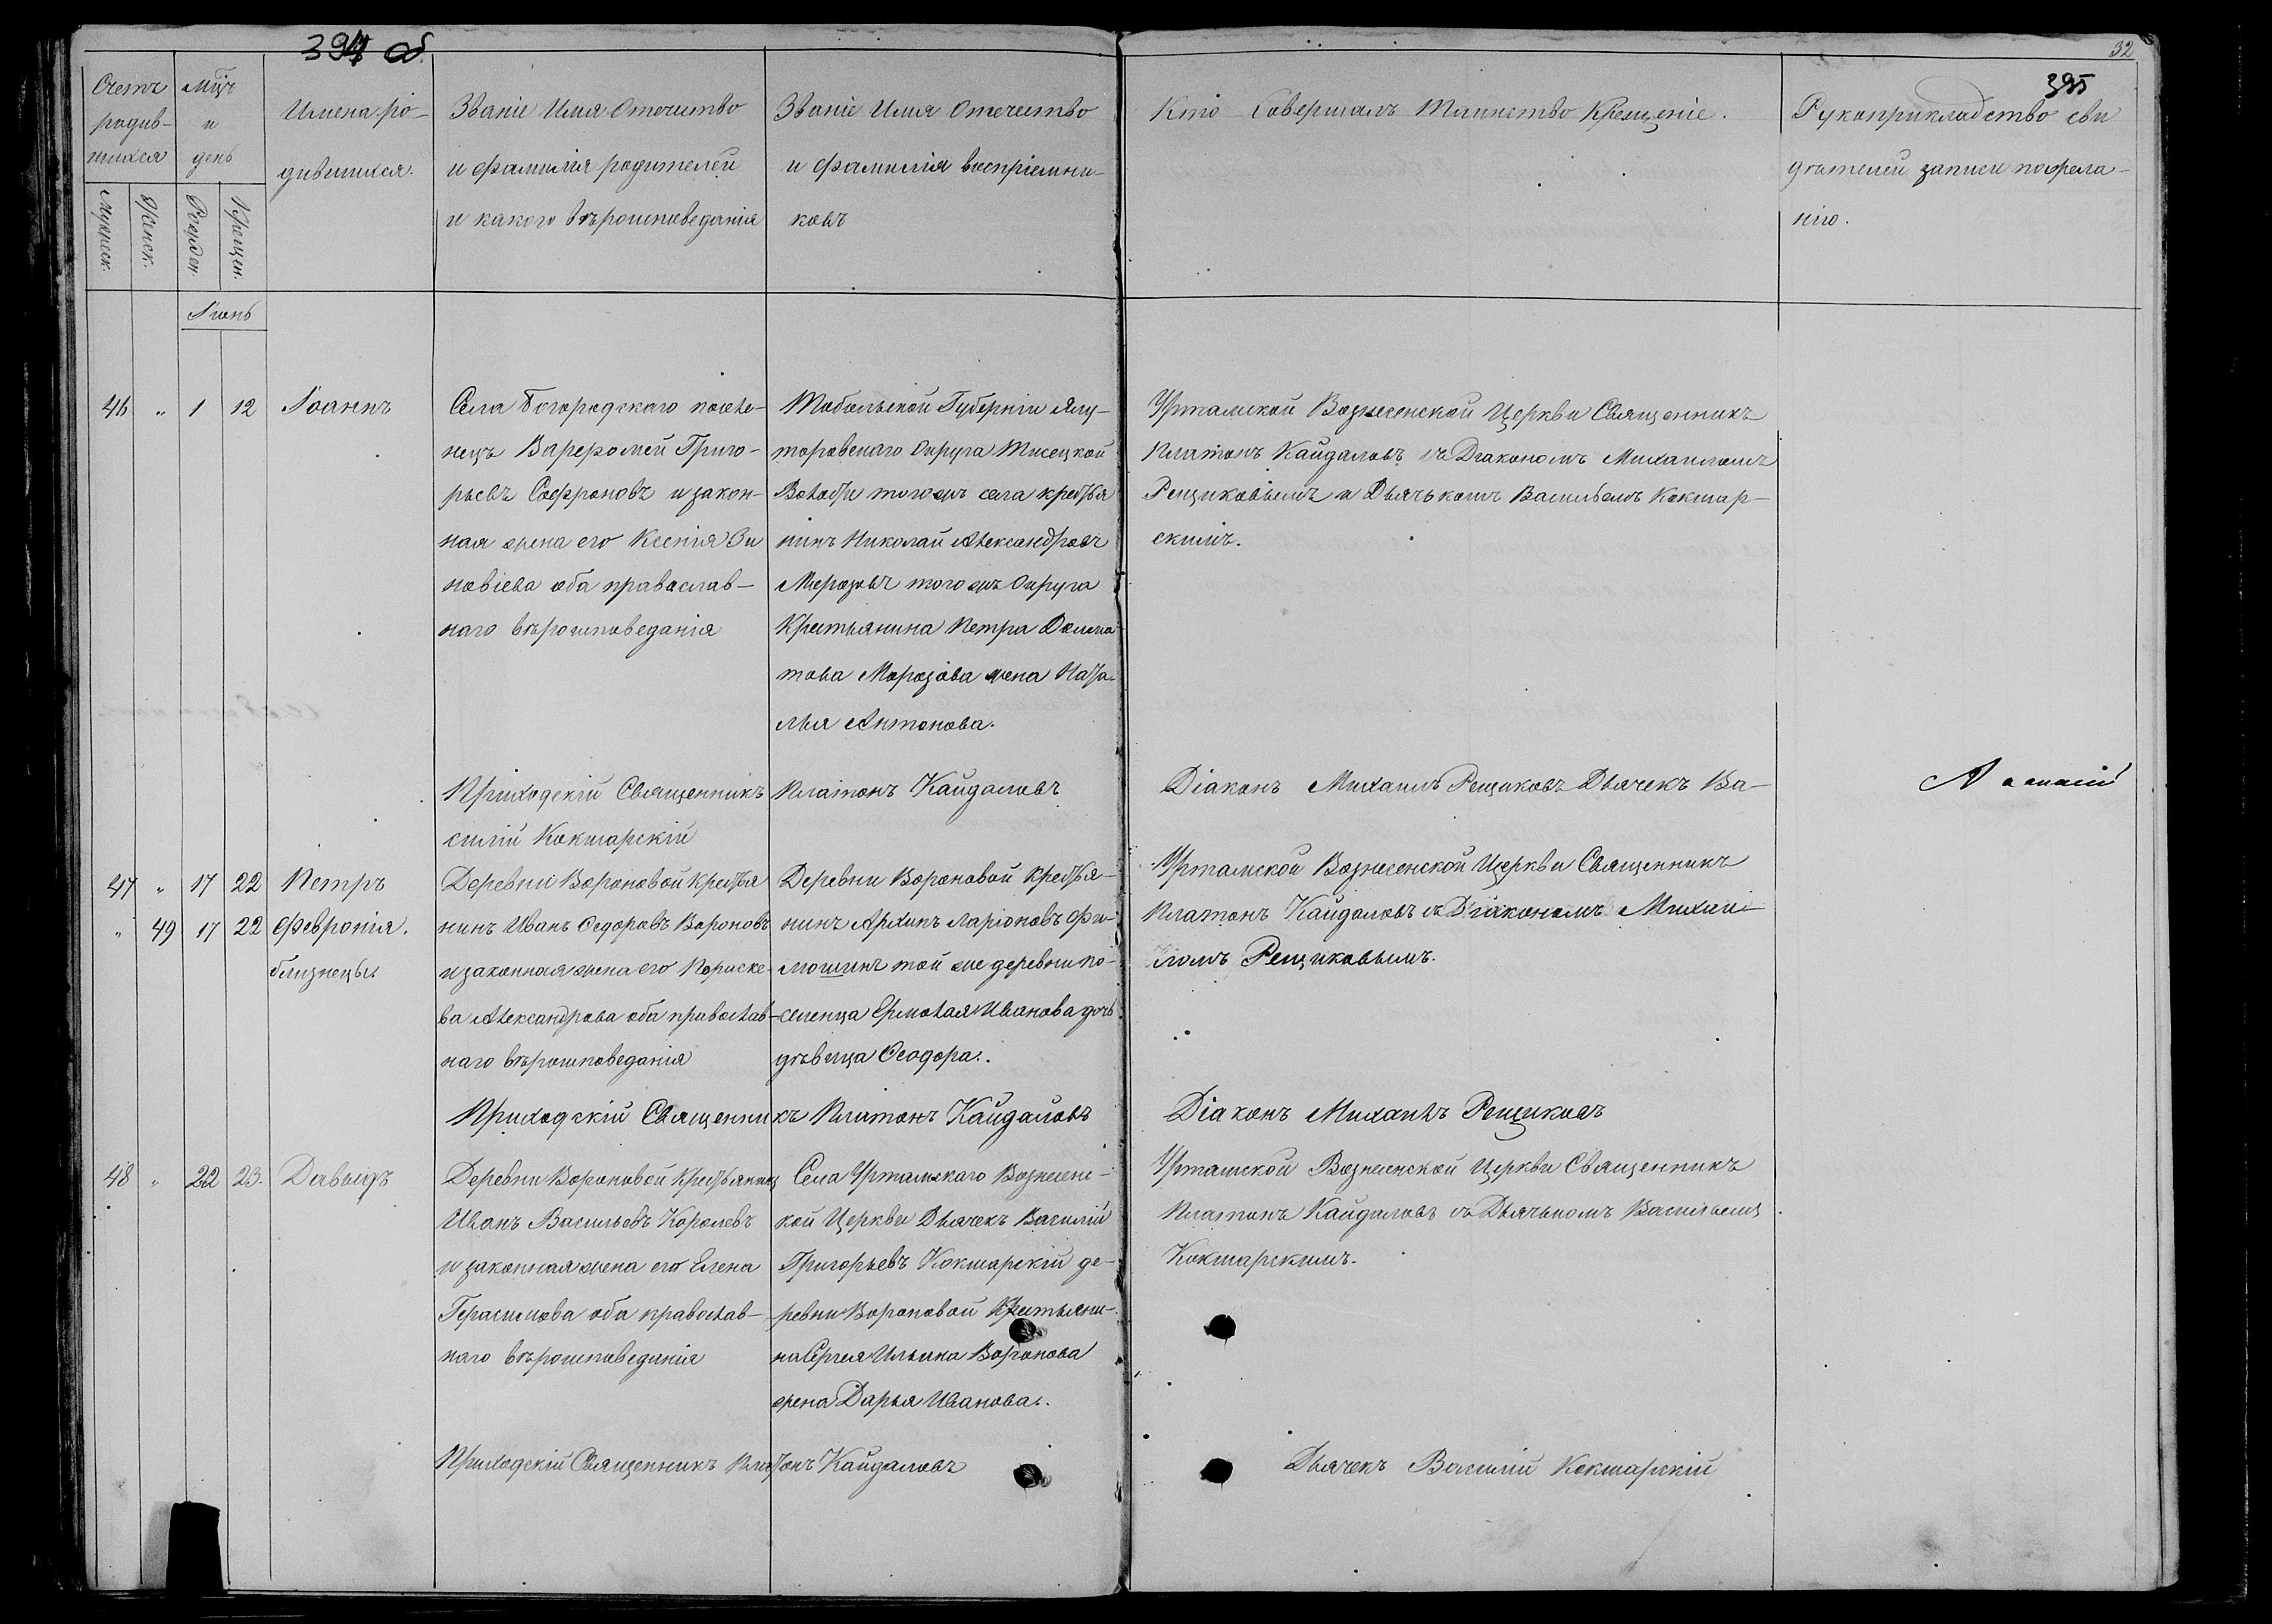 394 об.
32
395
Счетъ
родив-
шихся
Мужеск.
Женск.
мцъ
и
день
Рожден.
Крещен.
Имена ро-
дившихся.
Званіе Имя Отечество
и фамилія родителей
и какого вѣроисповеданія
Званіе Имя Отечество
и фамилія воспріемни-
ковъ
Кто Совершалъ Таинство Крещеніе.
Рукоприкладство сви
дѣтелей записи по жела-
нію.
Іюнь
46 " 1 12 Іоаннъ
Села Богородскаго поселе-
нецъ Варфромей Григо-
рьевъ Софроновъ и закон-
ная жена его Ксенія Зи
новіева оба православ-
наго вѣроисповеданія
Тобольской Губерніи Ялу-
торовскаго Округа
Волости тогожъ села крестья
нинъ Николай Александровъ
Морозовъ тогожъ Округа
Крестьянина Петра
това Морозова жена Ната-
лья Антонова.
Уртамской Вознесенской Церкви Священникъ
Платонъ Кайдаловъ съ Діакономъ Михаиломъ
Рещиковымъ и Дьячькомъ Васильемъ Кокшар-
скимъ.
Приходскій Священникъ Платонъ Кайдаловъ Діаконъ Михаилъ Рещиковъ Дьячекъ Ва-
силій Кокшарскій
47 " 17 22 Петръ
" 49 17 22 Февронія.
близнецы.
Деревни Вороновой Крестья
нинъ Иванъ Ѳедоровъ Вороновъ
и законная жена его Пораске-
ва Александрова оба православ-
наго вѣроисповеданія
Деревни Вороновой Крестья-
нинъ Архипъ Ларіоновъ Фи-
мошинъ той же деревни по-
селенца Ермолая Иванова дочь
дѣвица Ѳеодора.
Уртамской Вознесенской Церкви Священникъ
Платонъ Кайдаловъ съ Діакономъ Михаи-
ломъ Рещиковымъ.
Приходскій Священникъ Платонъ Кайдаловъ Діаконъ Михаилъ Рещиковъ
48 " 22 23. Давыдъ
Деревни Вороновой Крестьянинъ
Иванъ Васильевъ Королевъ
и законная жена его Елена
Герасимова оба православ-
наго вѣроисповеданія
Села Уртамскаго Вознесенс-
кой Церкви Дьячекъ Василій
Григорьевъ Кокшарскій де-
ревни Вороновой Крестьяни-
на Сергея Ильина Воронова
жена Дарья Иванова.
Уртамской Вознесенской Церкви Священникъ
Платонъ Кайдаловъ съ Дьячькомъ Васильемъ
Кокшарскимъ.
Приходскій Священникъ Платонъ Кайдаловъ Дьячекъ Василій Кокшарскій